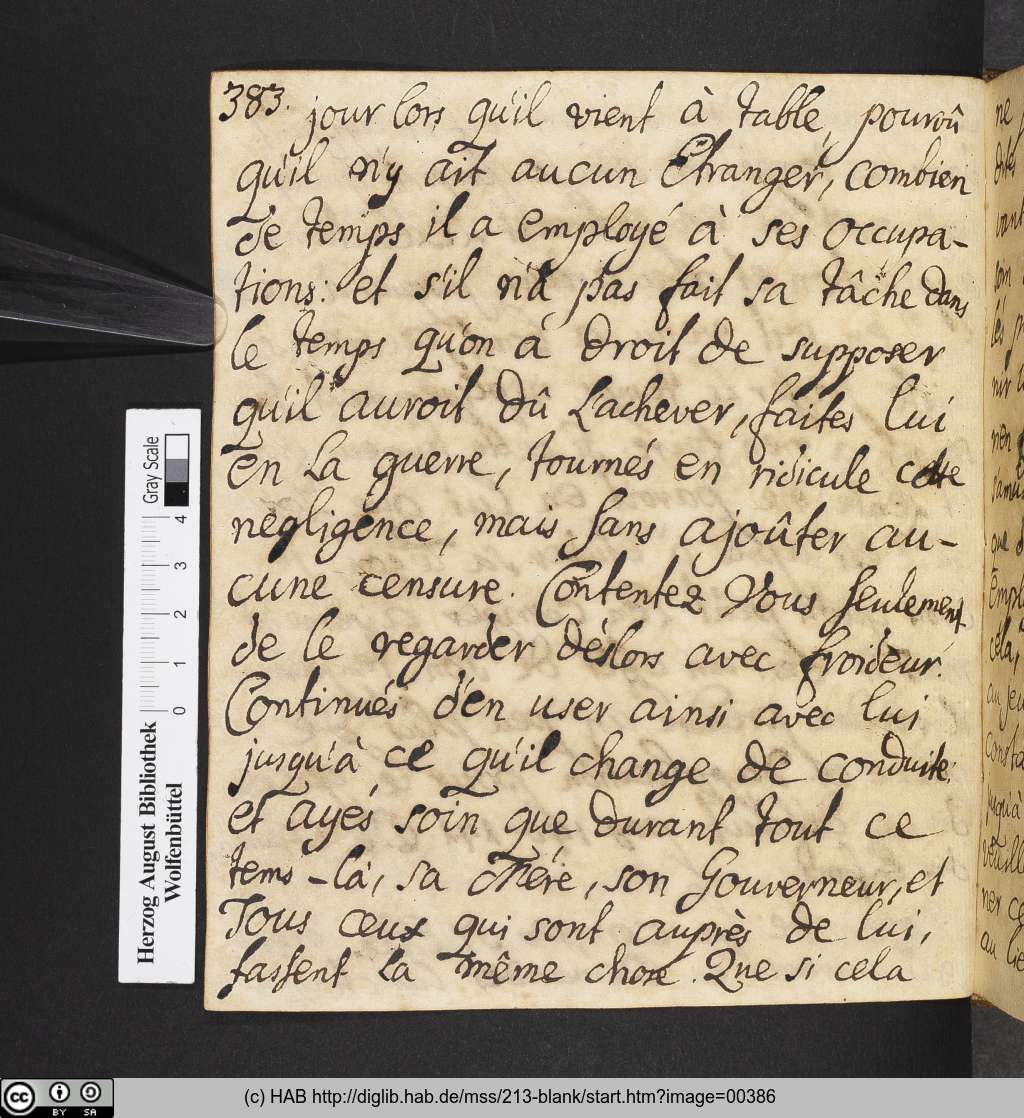 383. jour lors qu'il vient à table, pourvû
qu'il n'y ait aucun Etranger, combien
de temps il a employé à ses occupa-
tions: et s'il n'a pas fait sa tâche dans
le temps qu'on a droit de supposer
qu'il auroit dû L'achever, faites lui
en La guerre, tournés en ridicule cette
negligence, mais sans ajoûter au-
cune censure. Contentez Vous seulement
de le regarder déslors avec froideur.
Continués d'en user ainsi avec lui
jusqu'à ce qu'il change de conduite;
et ayés soin que durant tout ce
tems-là, sa Mére, son Gouverneur, et
Tous ceux qui sont auprès de lui,
fassent La même chose. Que si cela
Herzog August Bibliothek
Wolfenbüttel
Gray Scale
0 1 2 3 4
cc BY SA
(c) HAB http://diglib.hab.de/mss/213-blank/start.htm?image=00386